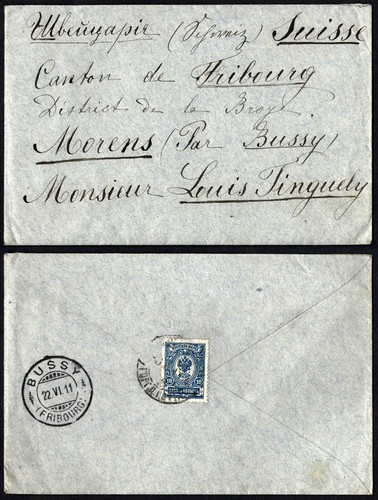 Швейцарія (Schweiz) Suisse
Canton de Fribourg
District de la Broye
Morens (Par Bussy)
Monsieur Louis Tinguely
BUSSY
22.VI.11
(FRIBOURG)
10 10